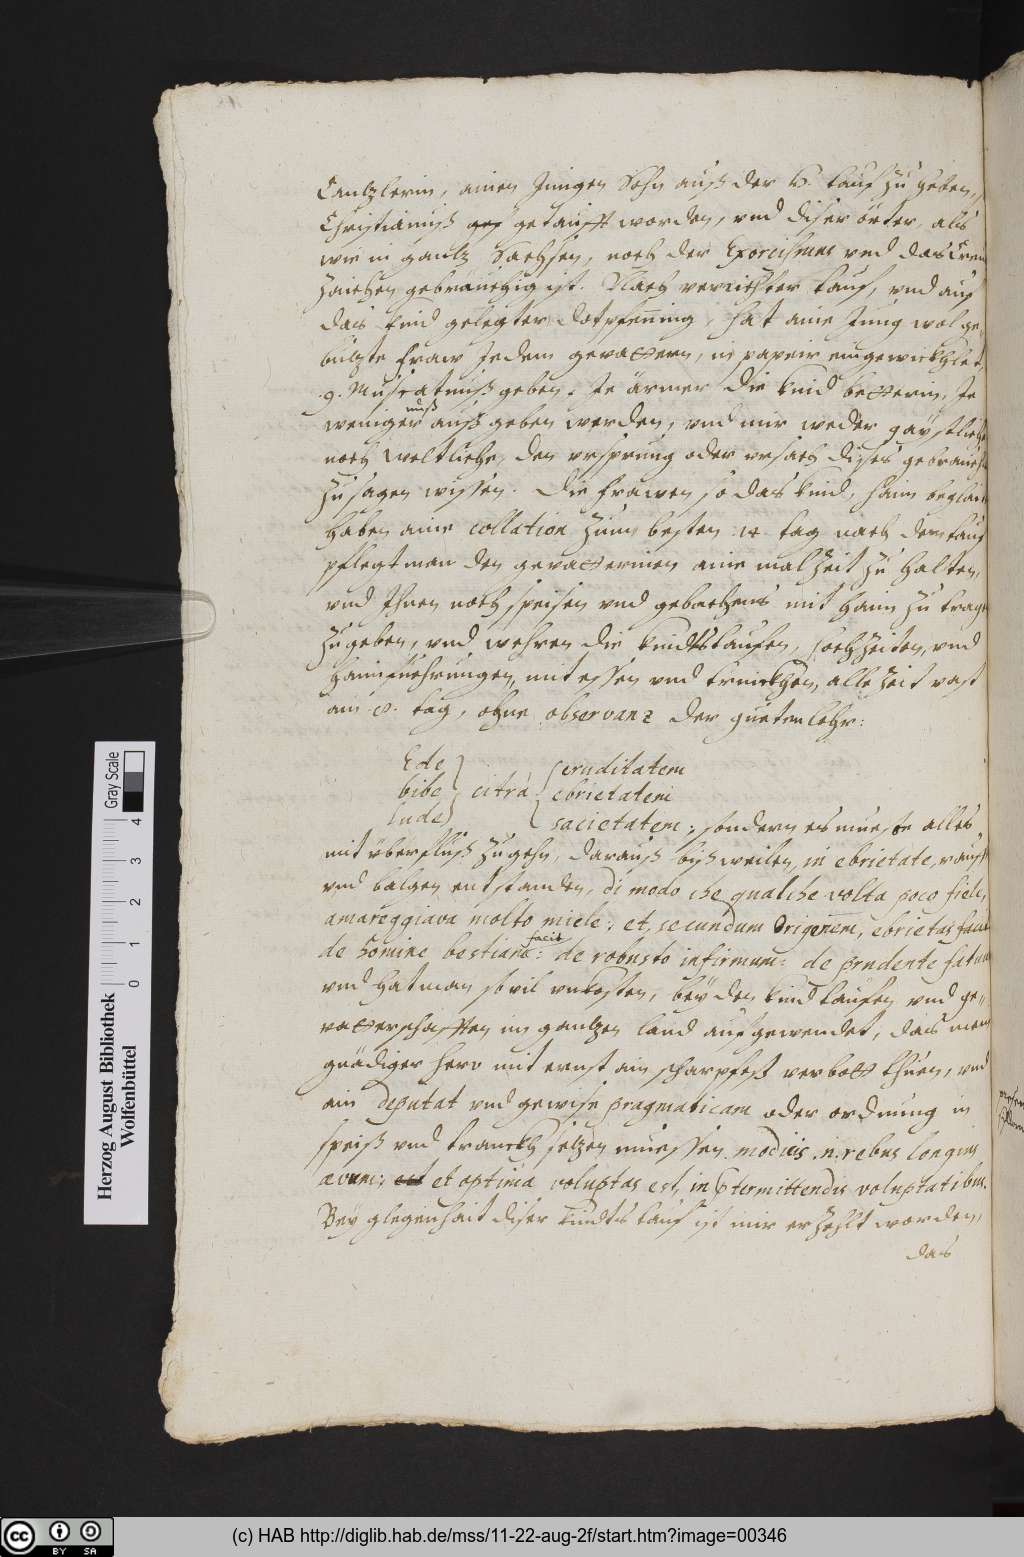 Cantzlerin, ainen Jungen Sohn auß der H. tauf zu heben,
Christianuß getaufft worden, vnd diser örter, alls
wie in gantz Sachsen, noch der Exorcismus vnd das Creü
zaichen gebräuchig ist. Nach verrichter tauf, vnd auf
dais kind gelegter dotpfenning, hat aine Jung wol ge-
butzte fraw Jedem gevattern, in papeir eingewickhlet
9. Muscatnuß geben. Je ärmer die kindbetterin, Je
weniger nuß auß geben werden, vnd mir weder gaystliche
noch weltliche, den vrsprung oder vrsach dises gebrauchs
zu sagen wissen. Die frawen so das kind, haim beglait
haben aine collation zum besten 14 tag nach dem tauf
pflegt man den gevatterinen aine malzeit zu halten,
vnd Ihnen noch speisen vnd gebachens mit haim zu trage
zugeben, vnd wehren die kindtstaufen, hochzeiten, vnd
haimfuehrungen, mit essen vnd trinckhen, alle zeit vast
ain 8. tag, ohne observanz der gueten lehr:
Ede
bibe citrà
lude
cruditatem
ebrietatem
sacietatem; sondern es mueste alles
mit überfluß zugehn, darauß bißweilen, in ebrietate, rauff
vnd balgen entstanden, di modo che qualche volta poco fiele,
amareggiava molto miele; et, secundum Origenem, ebrietas facit
de homine bestiam: facit de robusto infirmum: de prudente fatuum
vnd hat man so vil vnkosten, bey den kindtaufen vnd ge-
vatterschafften im gantzen land aufgewendet, dais mein
gnädiger herr mit ernst ain scharpfeß verbott thuen, vnd
ain deputat vnd gewise pragmaticam oder ordnung in
speiß vnd tranckh setzen müessen modicis .n. rebus longius
ævum; est et optima voluptas est, in prtermittendis voluptatibus.
Bey glegenhait diser kindts tauf ist mir erzehlt worden,
das
Herzog August Bibliothek
Wolfenbüttel
0 1 2 3 4
Gray Scale
cc BY SA
(c) HAB http://diglib.hab.de/mss/11-22-aug-2f/start.htm?image=00346